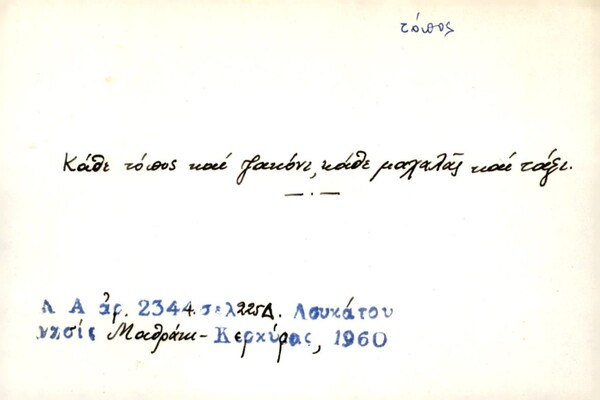 τόπος
Κάθε τόπος καί ζακόνι, κάθε μαχαλᾶς καί τάξι.
Λ Α ἀρ. 2344. σελ 225Δ. Λουκάτου
νησίς Μαθράκι - Κερκύρας, 1960